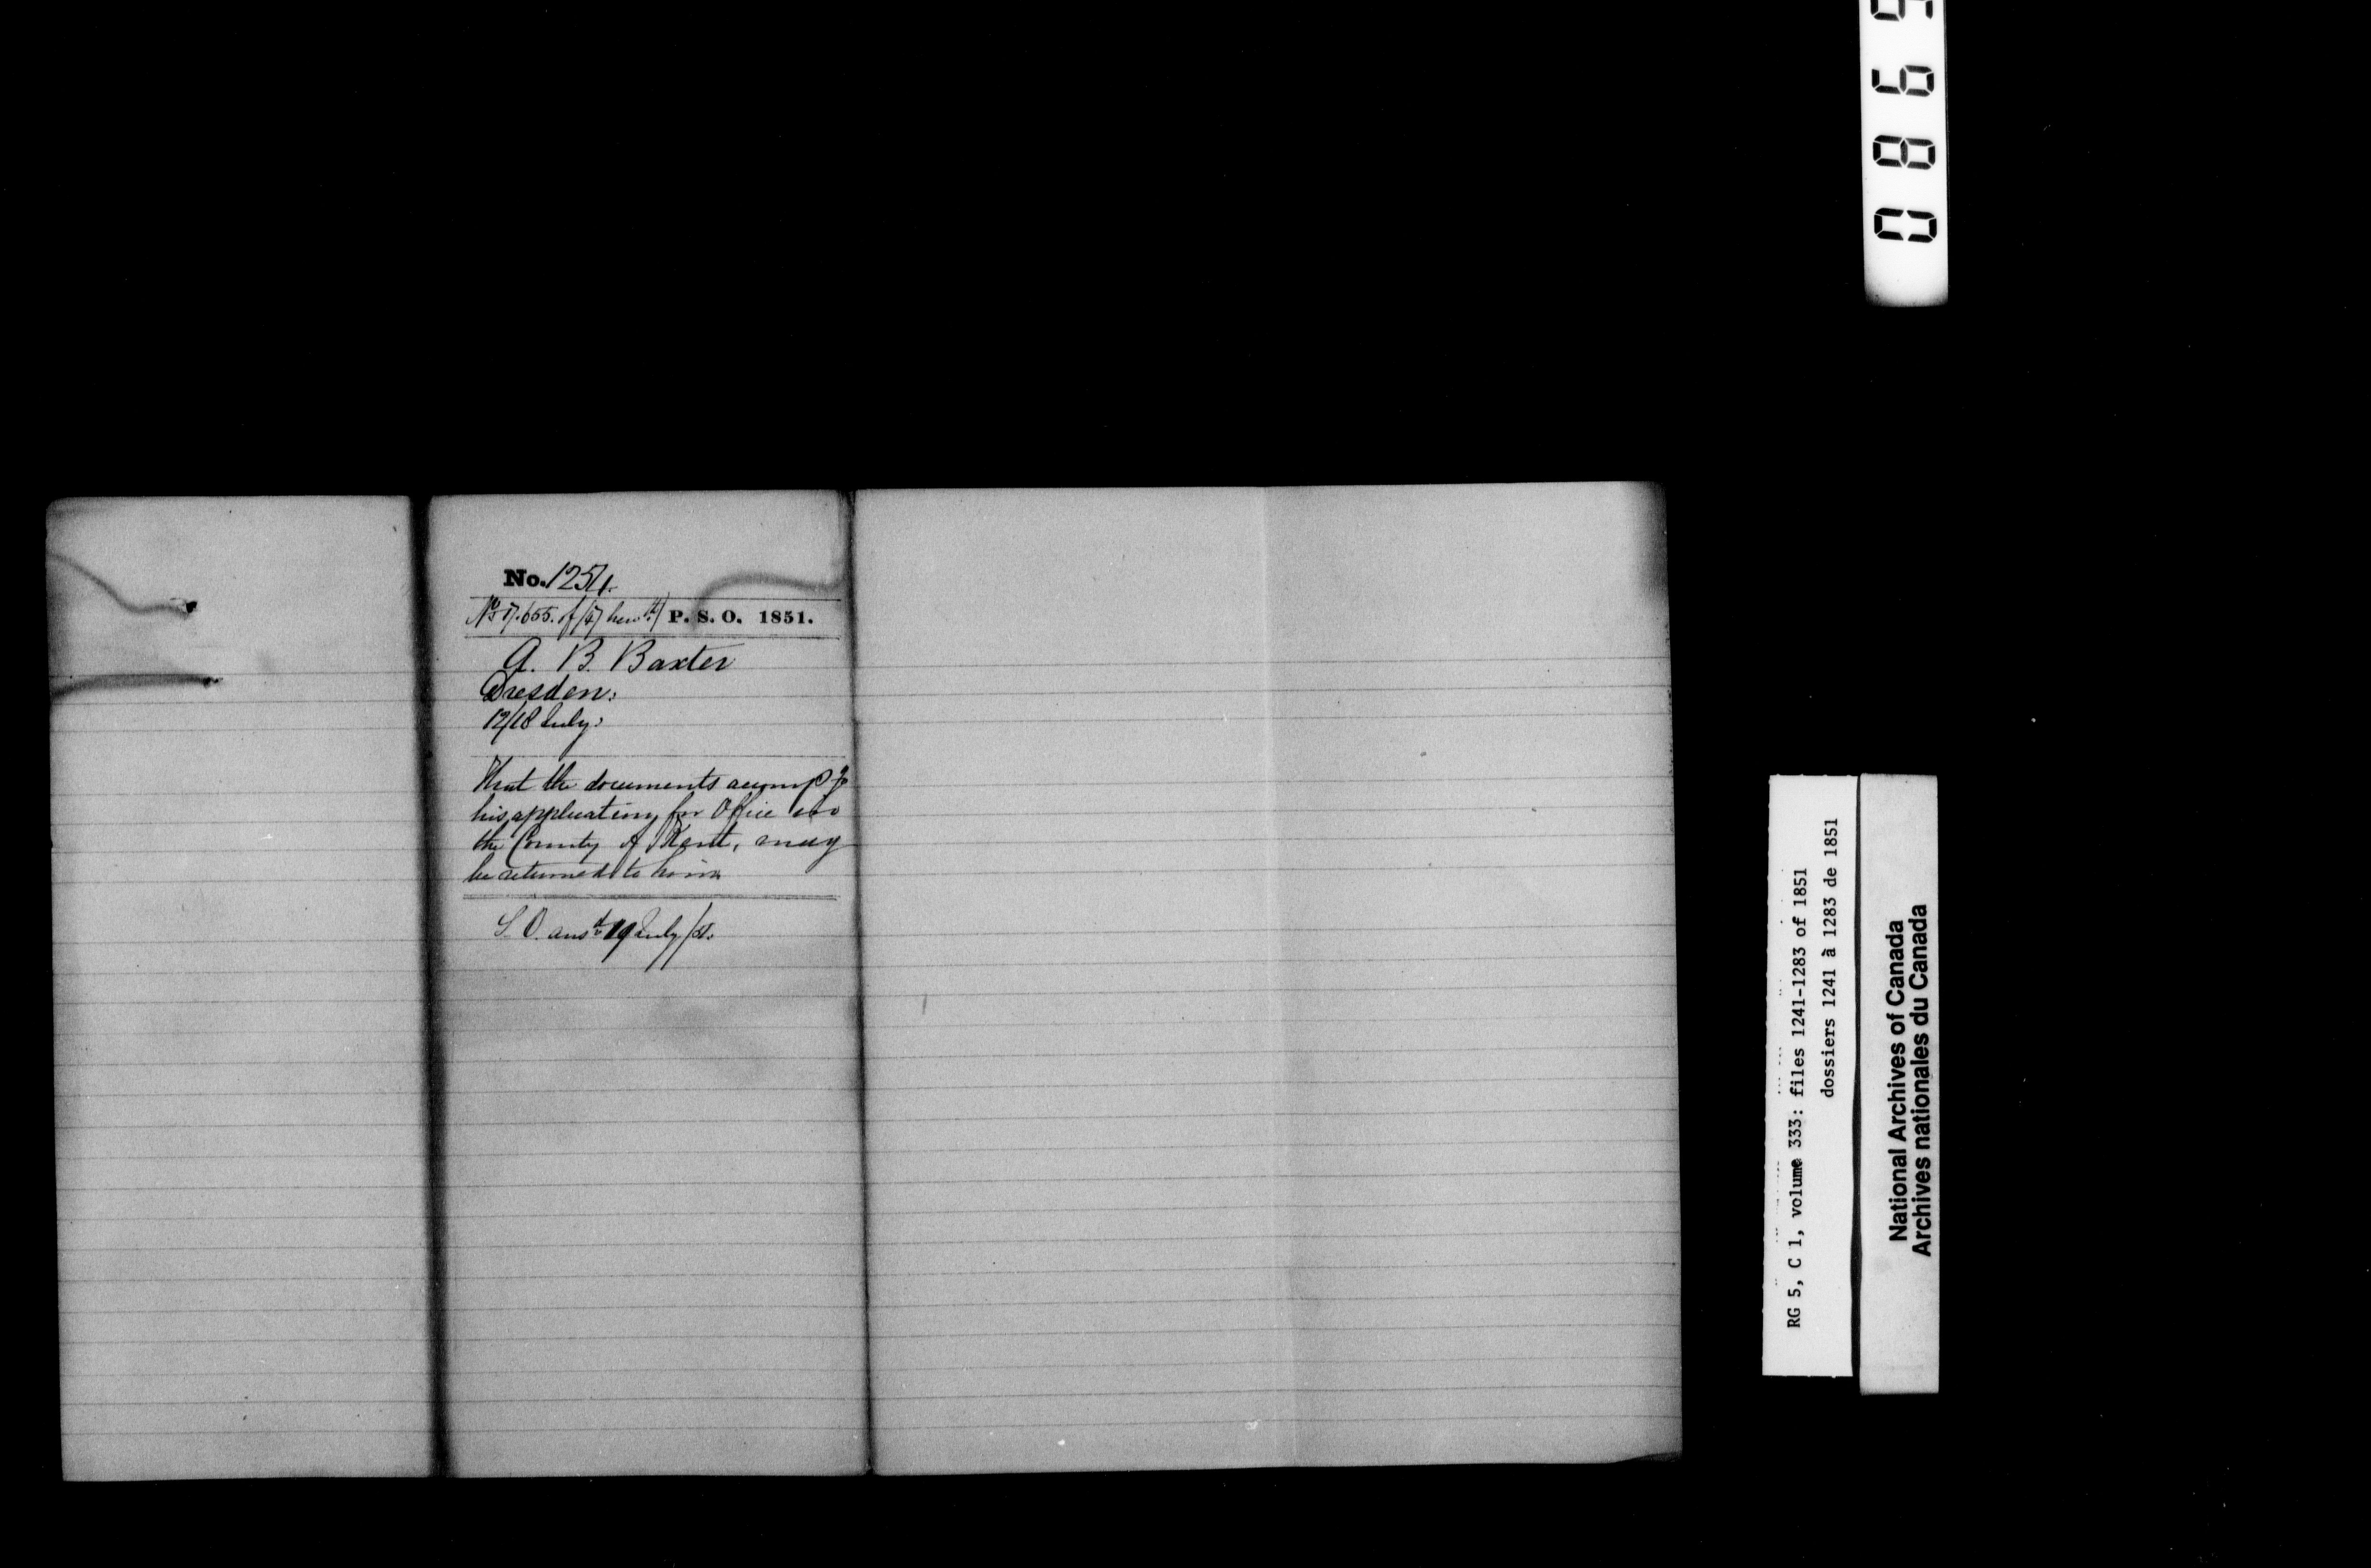 No. 1251.
P. S. O. 1851.
A. B. Baxter
Dresden:
12/18 July:
That the documents accompg
his application for Office in
the County of Kent, may
be returned to him
S. O. ansd 19 July /51.
RG 5, C 1, volume 333: files 1241-1283 of 1851
dossiers 1241 à 1283 de 1851
National Archives of Canada
Archives nationales du Canada